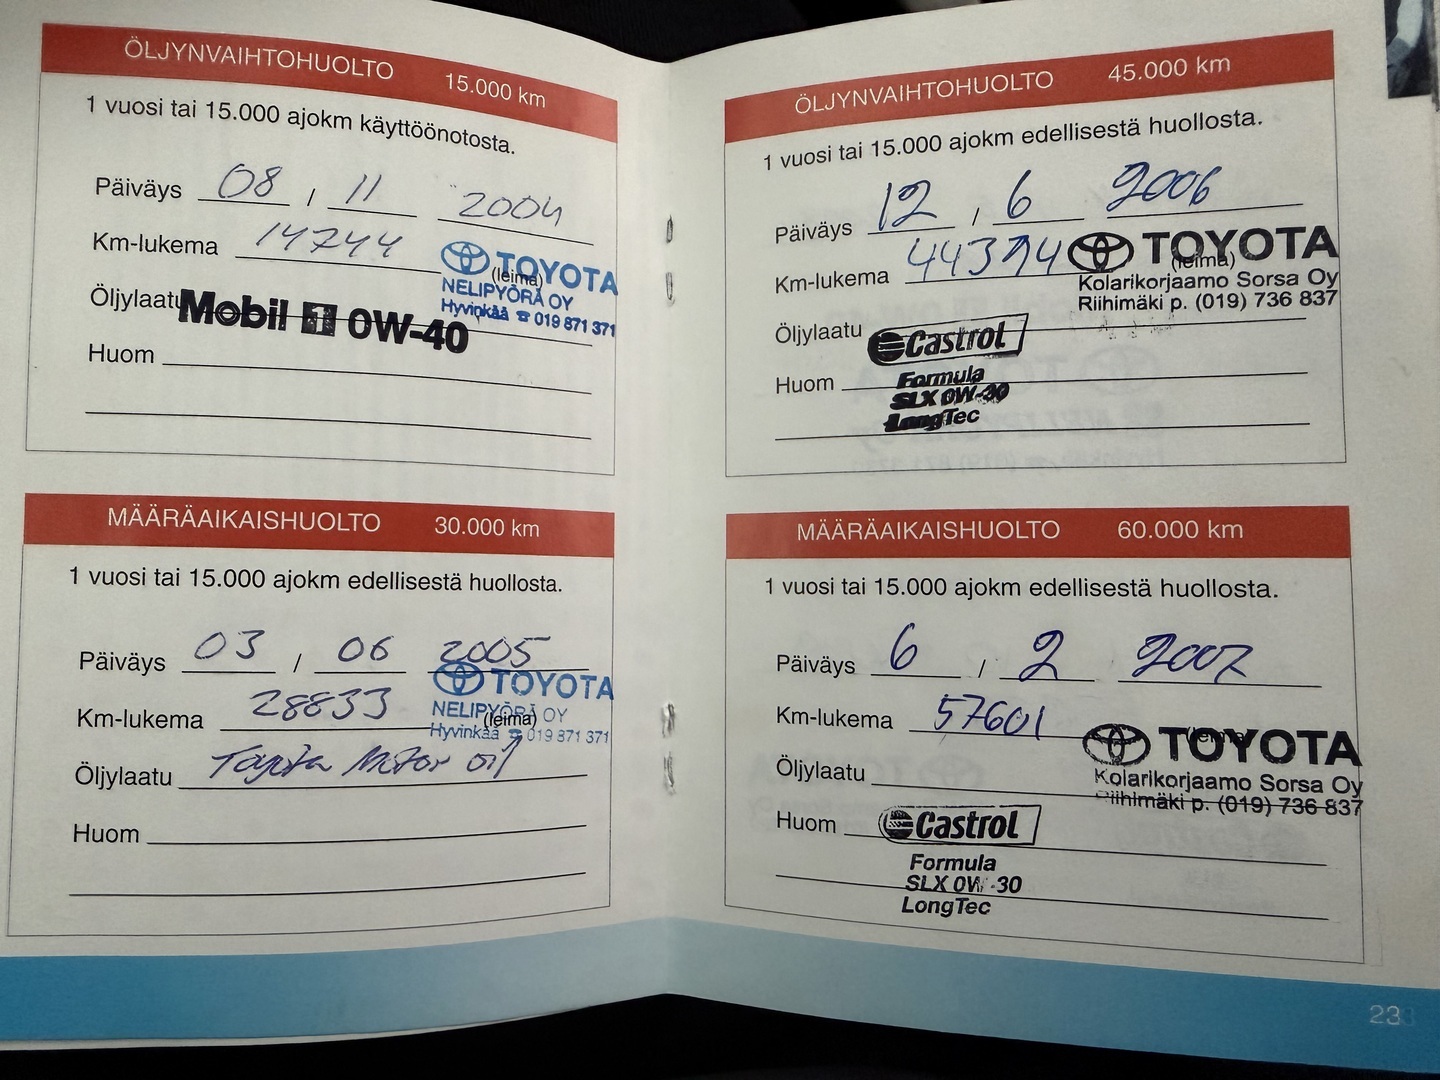 ÖLJYNVAIHTOHUOLTO 15.000 km
1 vuosi tai 15.000 ajokm käyttöönotosta.
Päiväys 08 / 11 2004
Km-lukema 14744
TOYOTA
(leima)
NELIPYÖRÄ OY
Hyvinkää ☎ 019 871 371
Öljylaatu Mobil 1 0W-40
Huom
MÄÄRÄAIKAISHUOLTO 30.000 km
1 vuosi tai 15.000 ajokm edellisestä huollosta.
Päiväys 03 / 06 2005
Km-lukema 28833
TOYOTA
NELIPYÖRÄ OY
(leima)
Hyvinkää ☎ 019 871 371
Öljylaatu Toyota Motor oil
Huom
ÖLJYNVAIHTOHUOLTO 45.000 km
1 vuosi tai 15.000 ajokm edellisestä huollosta.
Päiväys 12 / 6 2006
Km-lukema 44394
TOYOTA
(leima)
Kolarikorjaamo Sorsa Oy
Riihimäki p. (019) 736 837
Öljylaatu Castrol
Huom Formula
SLX 0W-30
LongTec
MÄÄRÄAIKAISHUOLTO 60.000 km
1 vuosi tai 15.000 ajokm edellisestä huollosta.
Päiväys 6 / 2 2007
Km-lukema 57601
(leima)
TOYOTA
Kolarikorjaamo Sorsa Oy
Riihimäki p. (019) 736 837
Öljylaatu
Huom Castrol
Formula
SLX 0W-30
LongTec
23